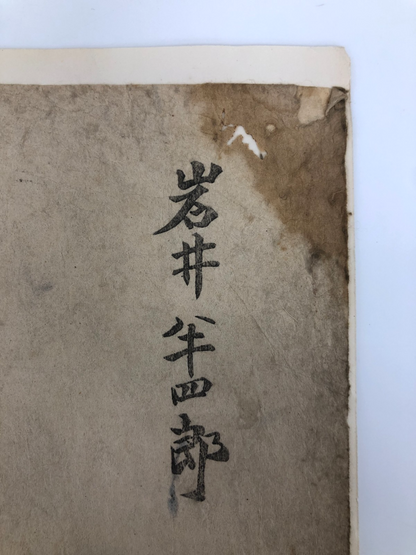 岩井半四郎